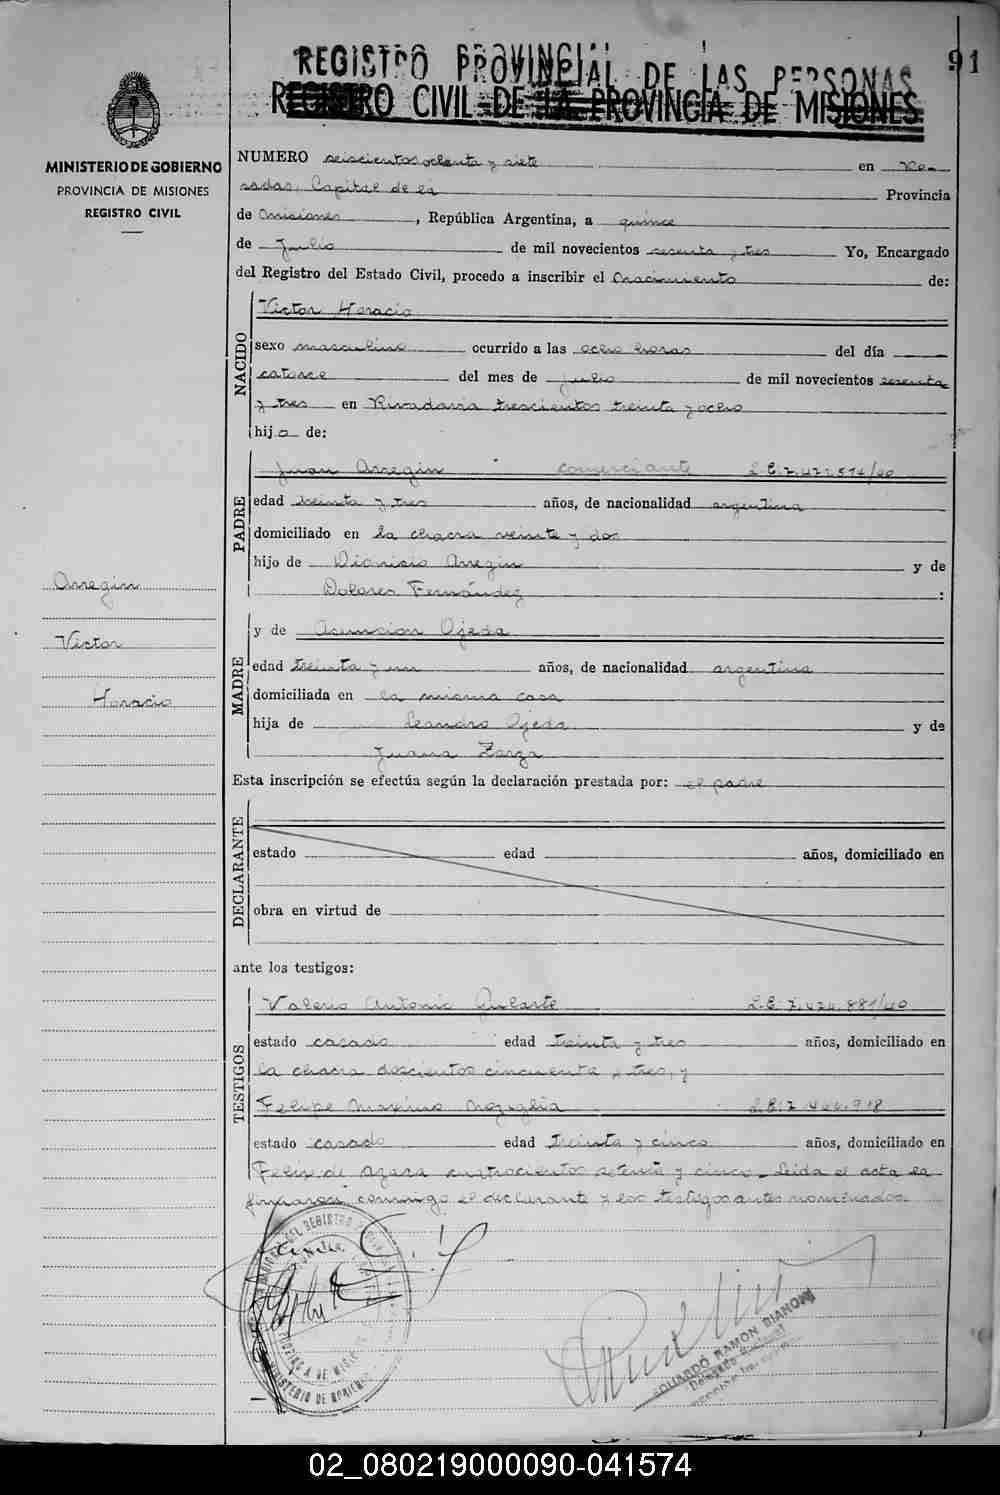 91
REGISTRO PROVINCIAL DE LAS PERSONAS
REGISTRO CIVIL DE LA PROVINCIA DE MISIONES
MINISTERIO DE GOBIERNO
PROVINCIA DE MISIONES
REGISTRO CIVIL
NUMERO seiscientos ochenta y siete en Po-
sadas, Capital de la Provincia
de Misiones, República Argentina, a quince
de Julio de mil novecientos sesenta y tres Yo, Encargado
del Registro del Estado Civil, procedo a inscribir el Nacimiento de:
NACIDO
Victor Horacio
sexo masculino ocurrido a las ocho horas del día
catorce del mes de julio de mil novecientos sesenta
y tres en Rivadavia trescientos treinta y ocho
hijo de:
PADRE
Juan Arregin comerciante L.E.7.471.514/40
edad treinta y tres años, de nacionalidad argentina
domiciliado en la chacra veinte y dos
hijo de Dionisio Arregin y de
Dolores Fernández :
Arregin
Victor
Horacio
MADRE
y de Asuncion Ojeda
edad treinta y un años, de nacionalidad argentina
domiciliada en la misma casa
hija de Leandro Ojeda y de
Juana Zarza
Esta inscripción se efectúa según la declaración prestada por: el padre
DECLARANTE
estado edad años, domiciliado en
obra en virtud de
ante los testigos:
TESTIGOS
Valerio Antonio Gularte L.E.7.474.881/40
estado casado edad treinta y tres años, domiciliado en
la chacra doscientos cincuenta y tres, y
Felipe Maximo L.E.7
estado casado edad treinta y cinco años, domiciliado en
Felix de Azara cuatrocientos setenta y cinco. Leida el acta la
firmaron conmigo el declarante y los testigos antes nombrados.
EDUARDO RAMON BIANCHI
Delegado
02_080219000090-041574